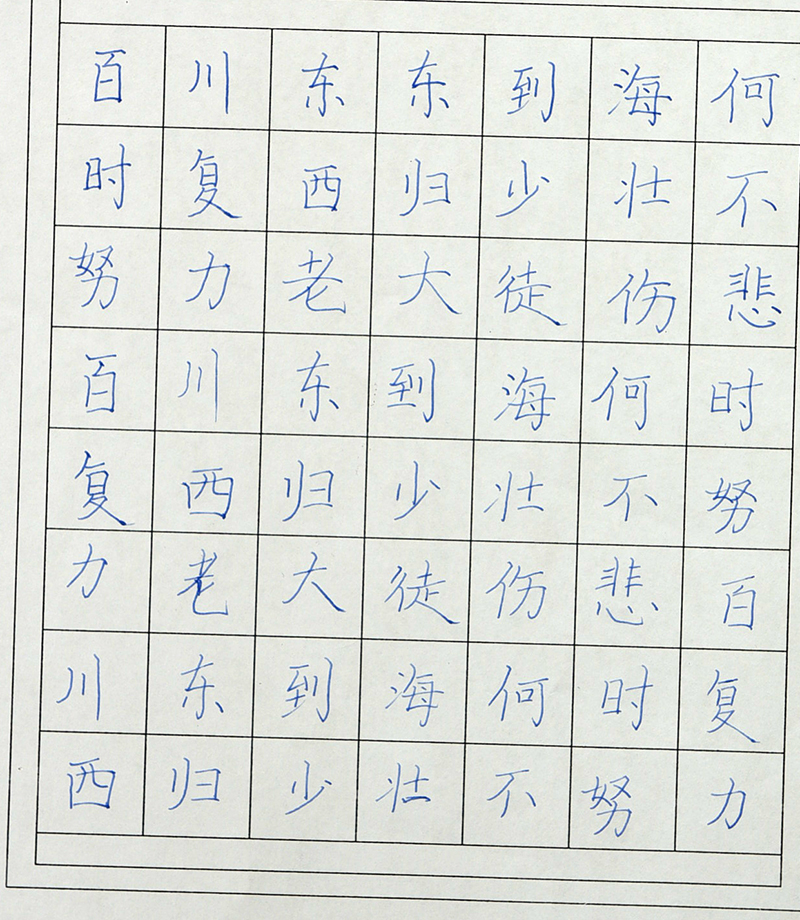 百川东东到海何
时复西归少壮不
努力老大徒伤悲
百川东到海何时
复西归少壮不努
力老大徒伤悲百
川东到海何时复
西归少壮不努力